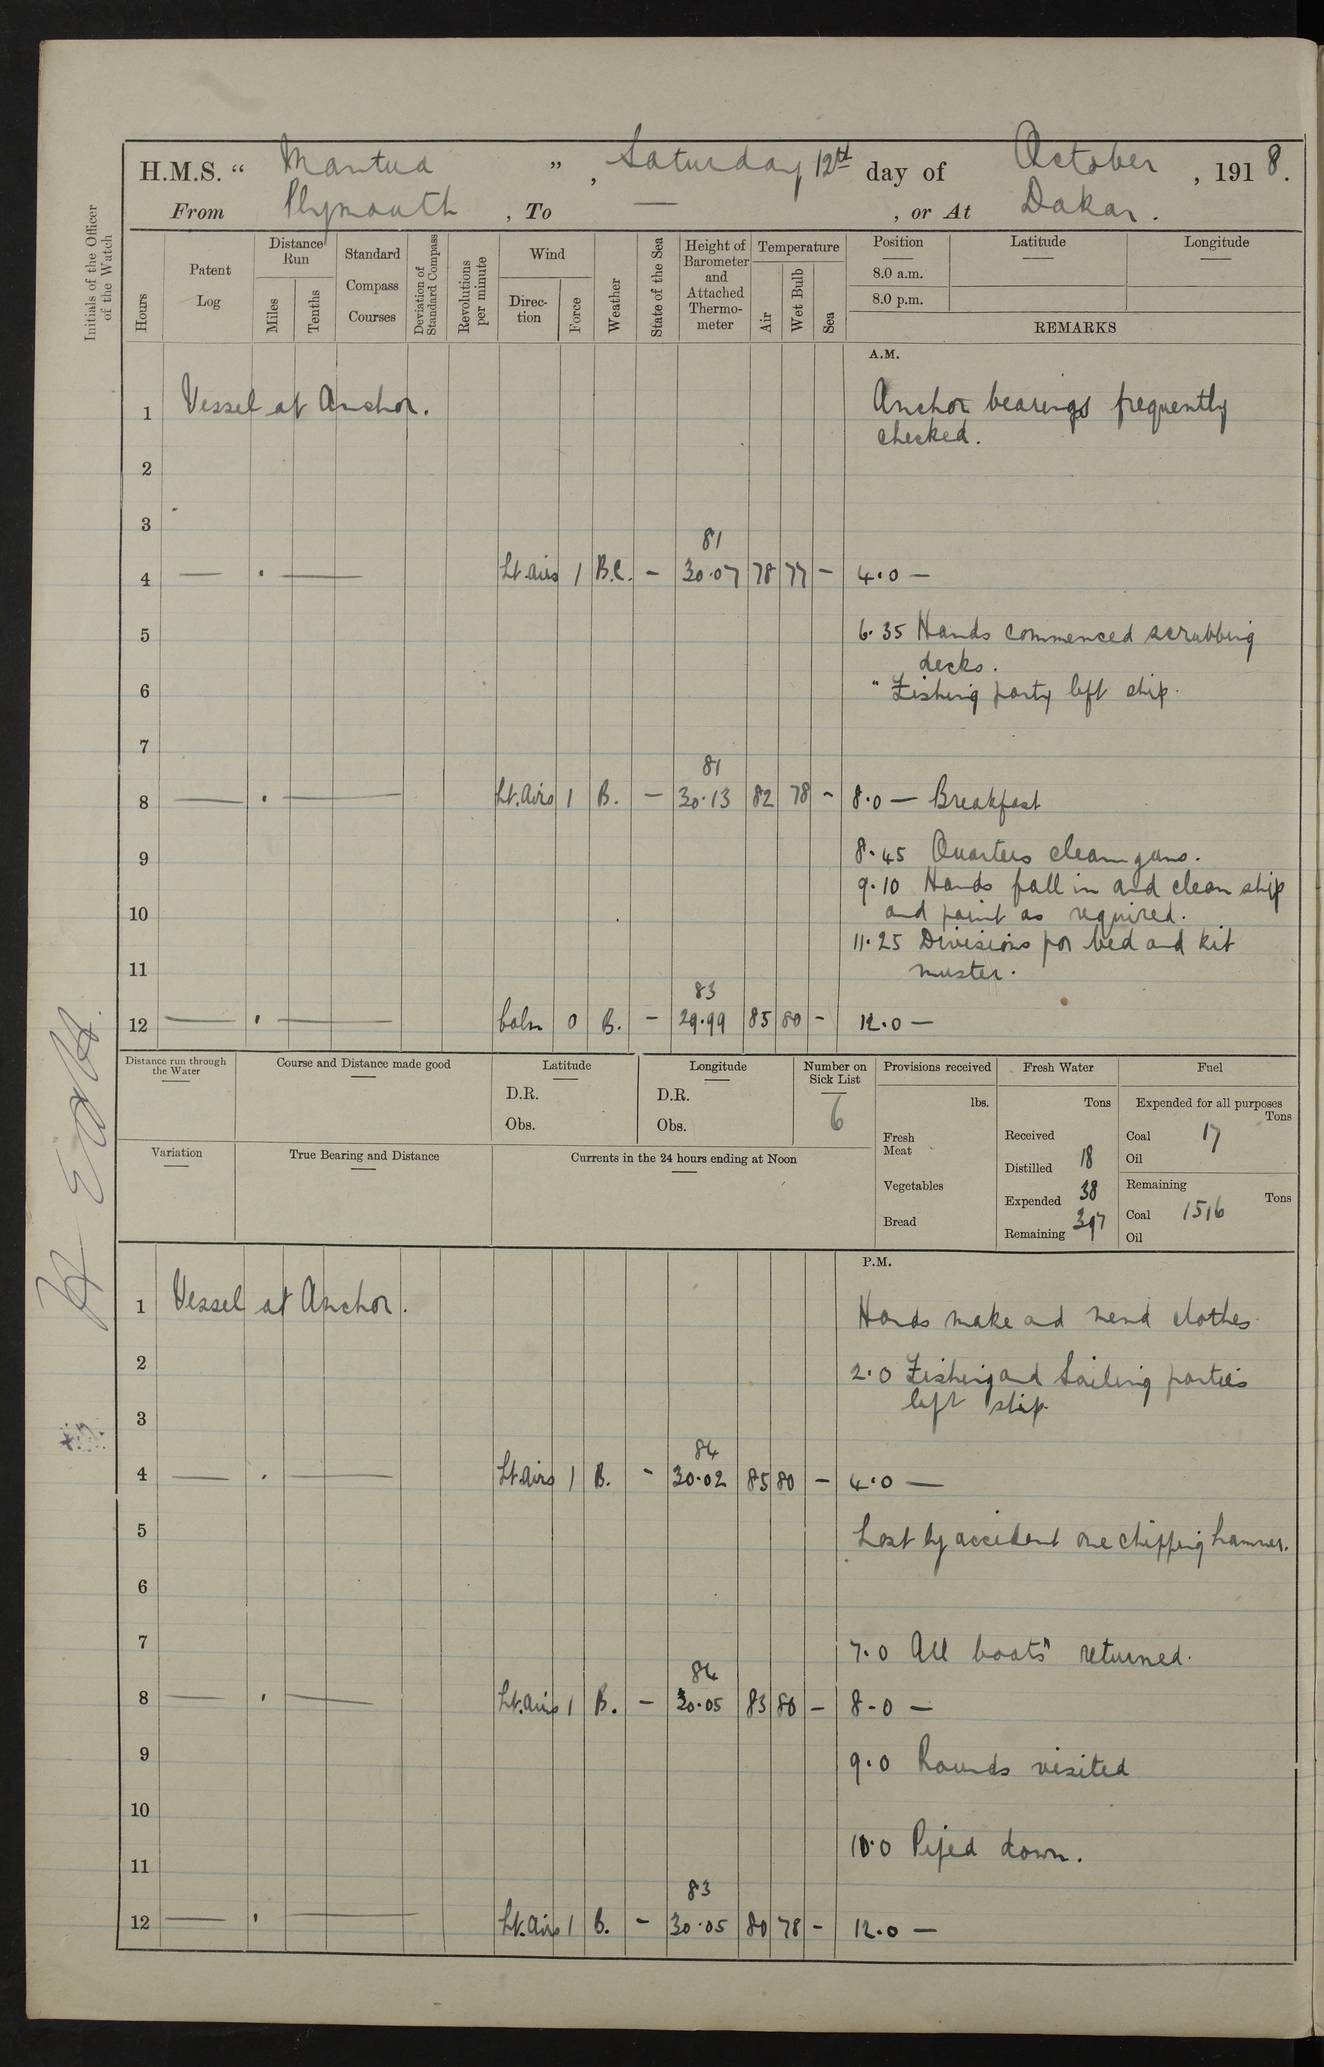 H.M.S. “ Mantua ” , Saturday 12th day of October , 1918.
From Plymouth , To — , or At Dakar .
Initials of the Officer of the Watch
Hours
Patent Log
Distance Run
Miles
Tenths
Standard Compass Courses
Deviation of Standard Compass
Revolutions per minute
Wind
Direc-tion
Force
Weather
State of the Sea
Height of Barometer and Attached Thermo-meter
Temperature
Air
Wet Bulb
Sea
Position
Latitude
Longitude
8.0 a.m.
8.0 p.m.
REMARKS
A.M.
1 Vessel at Anchor. Anchor bearings frequently
checked.
2
3
81
4 — . — Lt. airs 1 B.C. — 30.07 78 77 — 4.0 —
5 6.35 Hands commenced scrubbing
decks.
6 " Fishing party left ship.
7
81
8 — . — Lt. Airs 1 B. — 30.13 82 78 - 8.0 — Breakfast
9 8.45 Quarters clean guns.
9.10 Hands fall in and clean ship
10 and paint as required.
11.25 Divisions for bed and kit
11 muster.
83
12 — . — Calm 0 B. — 29.99 85 80 - 12.0 —
Distance run through the Water
Course and Distance made good
Latitude
D.R.
Obs.
Longitude
D.R.
Obs.
Number on Sick List
6
Provisions received
lbs.
Fresh Meat
Vegetables
Bread
Fresh Water
Tons
Received
Distilled 18
Expended 38
Remaining 397
Fuel
Expended for all purposes
Tons
Coal 17
Oil
Remaining
Tons
Coal 1516
Oil
Variation
True Bearing and Distance
Currents in the 24 hours ending at Noon
P.M.
1 Vessel at Anchor. Hands make and mend clothes
2 2.0 Fishing and Sailing parties
left ship.
3
84
4 — . — Lt. airs 1 B. - 30.02 85 80 — 4.0 —
5 Lost by accident one chipping hammer.
6
7 7.0 All boats returned.
84
8 — . — Lt. airs 1 B. — 30.05 83 80 — 8.0 —
9 9.0 Rounds visited
10
10.0 Piped down.
11
83
12 — . — Lt. airs 1 B. - 30.05 80 78 - 12.0 —